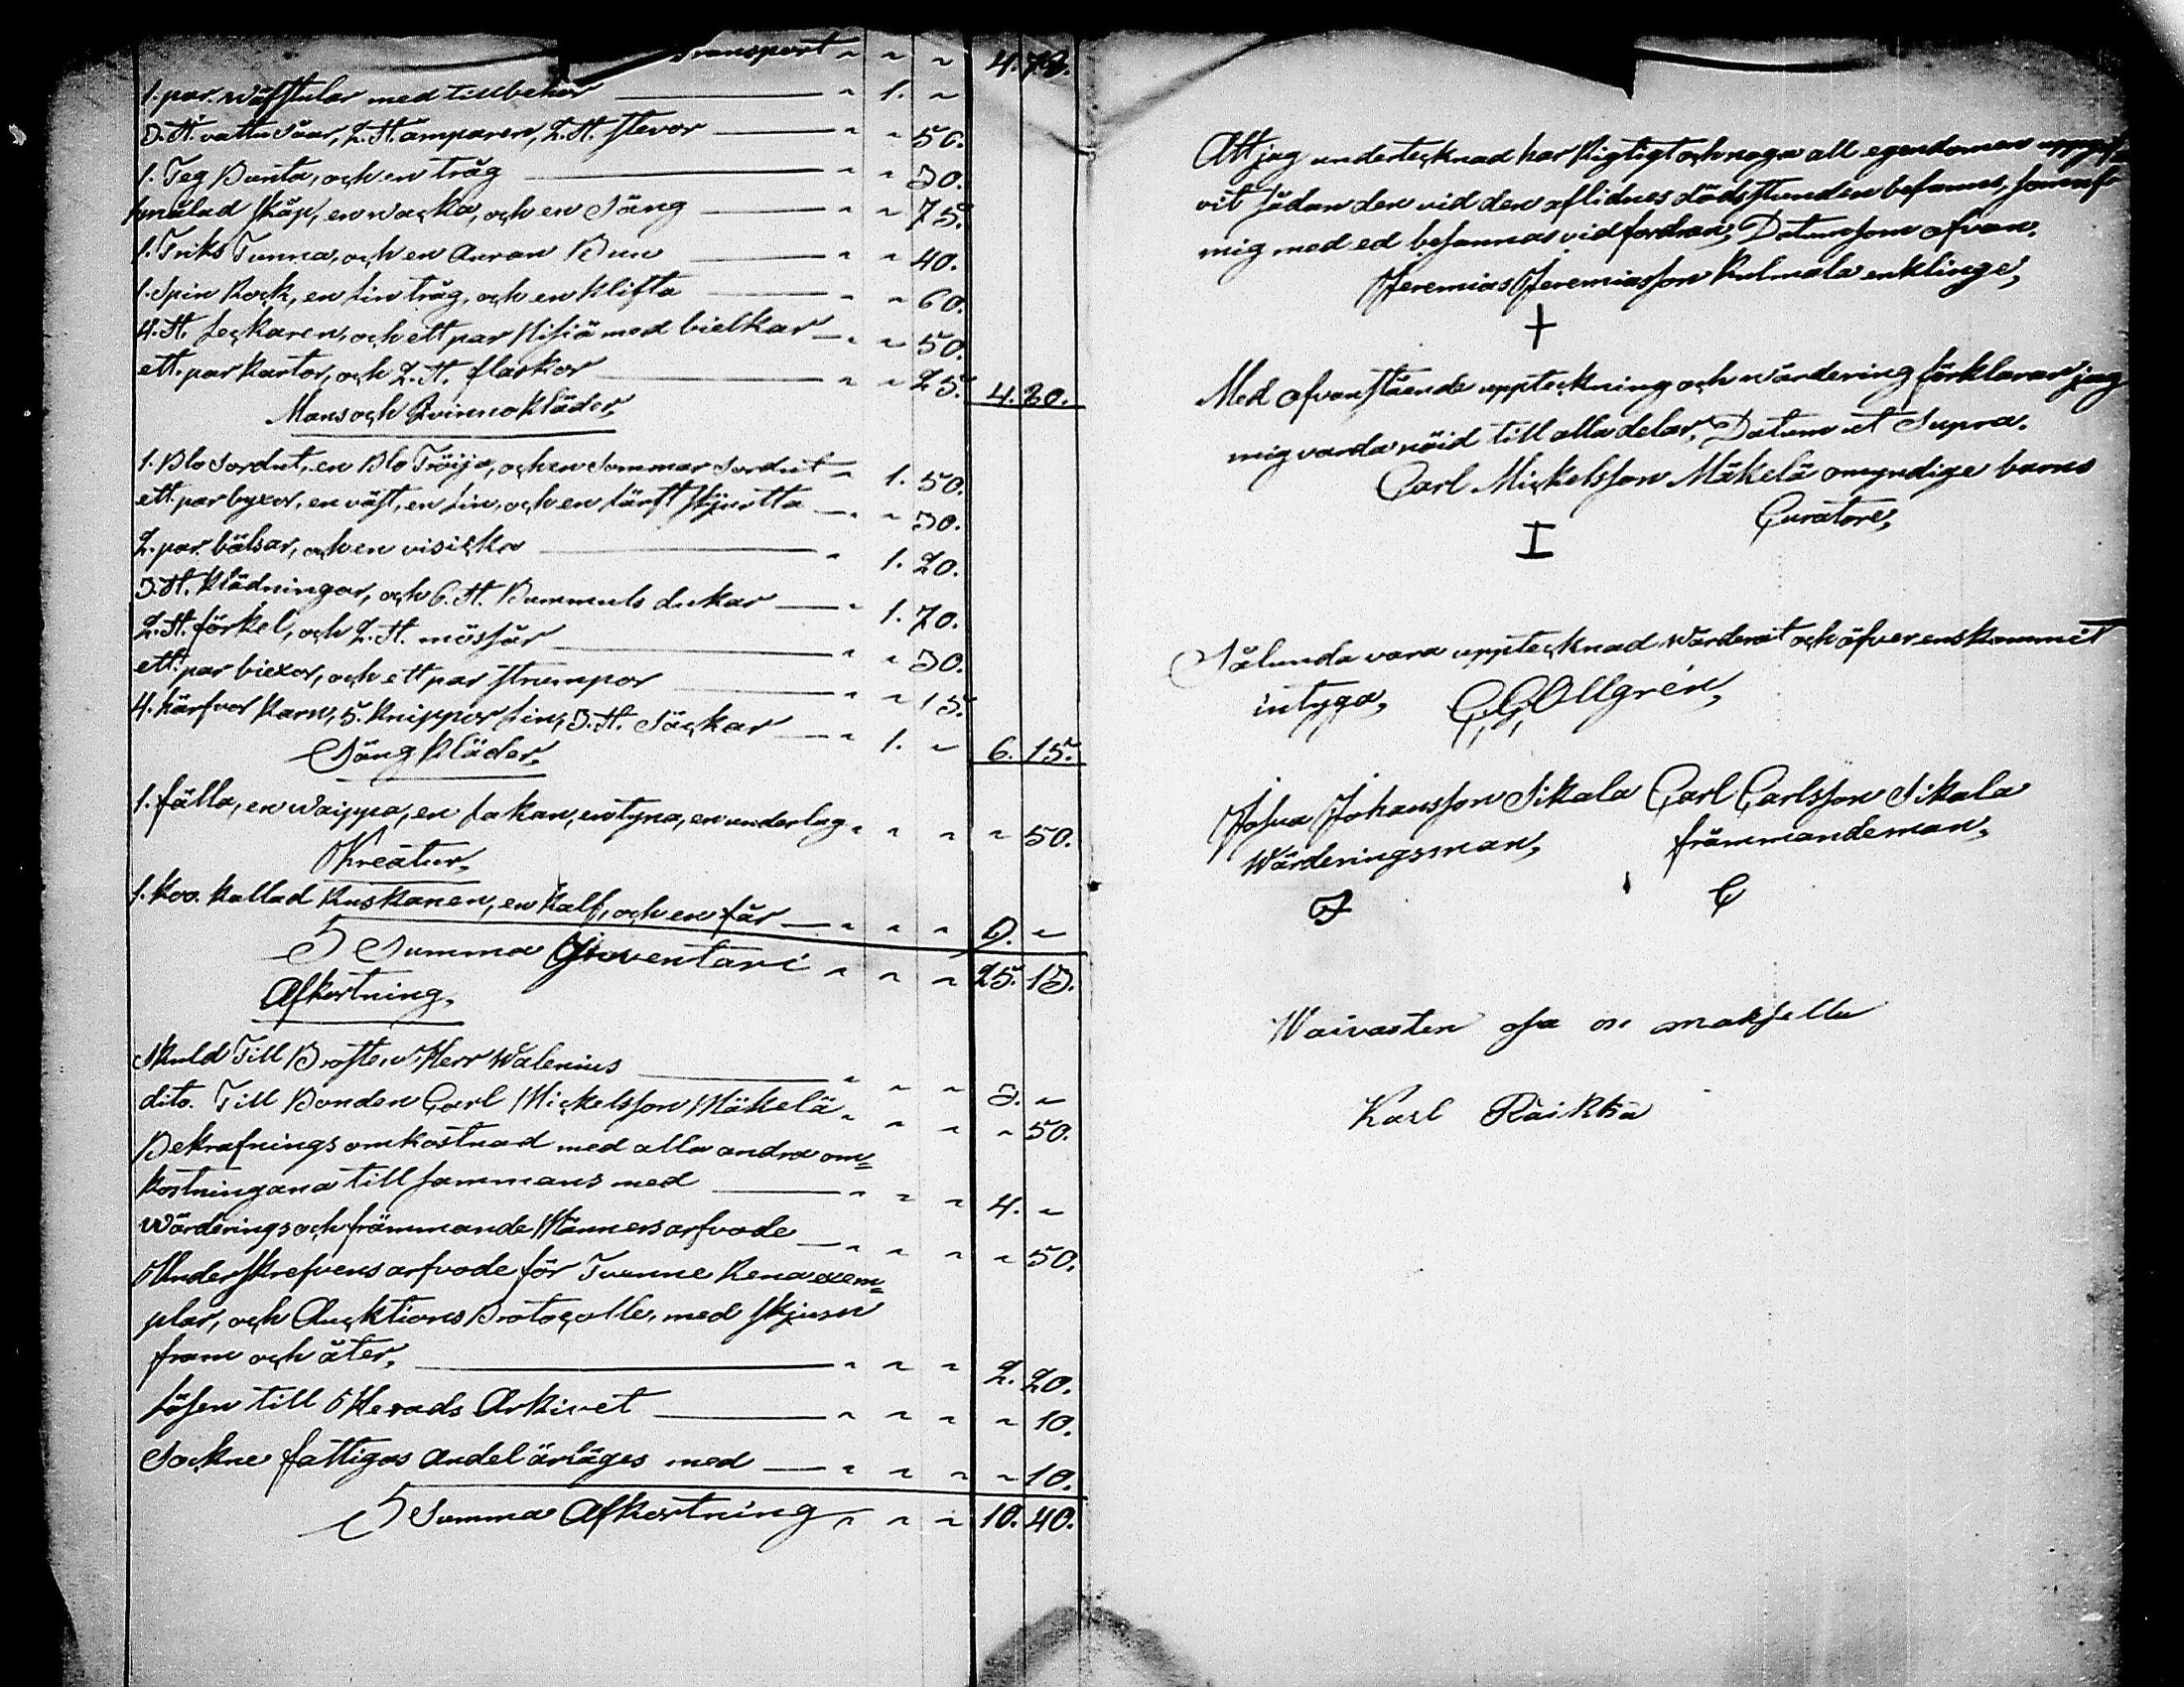 Transport " " " 4. 78.
1. par. wäfstular med tillbehör " 1. "
3. St. vattu Såar, 2. St. ämparen, 2. St. stevor " " 50.
1. Deg Bunta, och en tråg " " 30.
1. målad skåp, en wacka, och en Säng " " 75.
1. Driks Tunna, och en annan Bun " " 40.
1. Spin Rock, en Lin tråg, och en klifta " " 60.
4. St. Leckaren, och ett par med bielkar " " 50.
ett par kartor, och 2. St. flaskor " " 25. 4. 30.
Mans och Qvinnokläder,
1. Blo Sordut, en Blo Tröija, och en Sommar Sordut " 1. 50.
ett. par byxor, en väst, en Lin, och en Lärft skjortta " " 30.
2. par. bälsar, och en visicka " 1. 20.
3. St. klädningar, och 6. St. Bummuls dukar " 1. 70.
2. St. förkel, och 2. St. mössår " " 30.
ett. par biexor, och ett par strumpor " " 15.
4. härfvor karn, 5. knippor Lin, 3. St. Säckar " 1. " 6. 15.
Säng kläder,
1. fälla, en waippa, en Lakan, en tyna, en underlag " " " " 50.
Kreatur,
1. koo. kallad Kuskanen, en kalf, och en får " " " 9. "
Summa Inventari " " " 25. 13.
Afkortning,
Skuld Till Herr Walenius " " " 3. "
dito. Till Bonden Carl Mickelsson Mäkelä " " " " 50.
Bekrafnings omkostnad med alla andra om=
kostningana till sammans med " " " 4. "
Wärderings och främmande Männers arfvode " " " " 50.
Underskrefvens arfvode för Tvenne Rena exem=
plar, och Aucktions Protocolle, med skjuss
fram och åter, " " " 2. 20.
Lösen till Herads Arkivet " " " " 10.
Sockne fattigas andel ärläges med " " " " 10.
Summa Afkortning " " " 10. 40.
Att jag undertecknad har Rigtigt och noga all egendomen uppgif
vit Sådan den vid den aflidnes dödsstunden befanns, som af
mig med ed besannas vid fordran, Datum som ofvan,
Jeremias Jeremiasson Kulmala enklinge,
+
Med ofvanstående uppteckning och wärdering förklarar jag
mig varda nöid till alla delar, Datum ut Supra.
Carl Mickelsson Mäkelä omyndige barns
Curatore,
I
Sålunda vara upptecknad wärderat och öfverenskommet
intyga, G. G. Ollgrén,
Josua Johansson Sikala Carl Carlsson Sikala
Wärderingsman, främmandeman,
J C
Waivasten osa on maksettu
Karl Räikkä